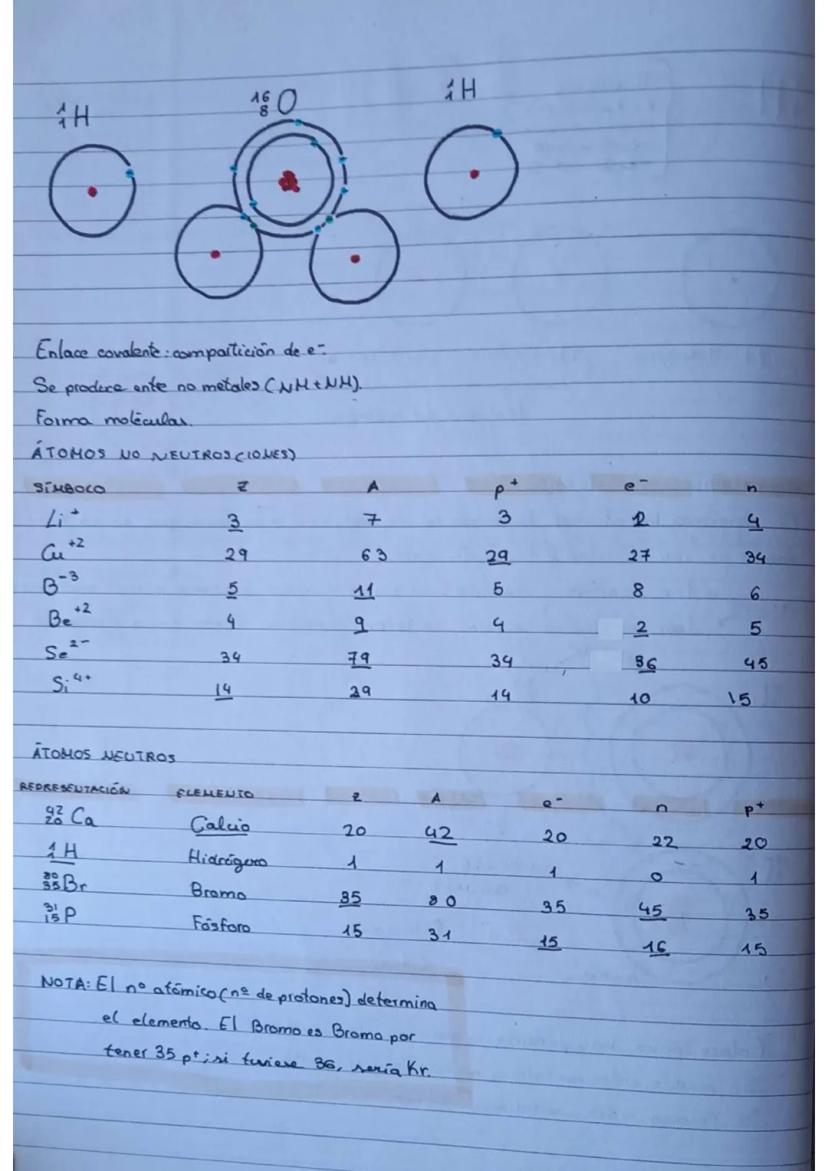 ¹₁H ¹⁶₈O ¹₁H
Enlace covalente: compartición de e⁻.
Se produce ente no metales (NM + NM).
Forma moléculas.
ÁTOMOS NO NEUTROS (IONES)
SÍMBOLO Z A p⁺ e⁻ n
Li⁺ 3 7 3 2 4
Cu⁺² 29 63 29 27 34
B⁻³ 5 11 5 8 6
Be⁺² 4 9 4 2 5
Se²⁻ 34 79 34 36 45
Si⁴⁺ 14 29 14 10 15
ÁTOMOS NEUTROS
REPRESENTACIÓN ELEMENTO Z A e⁻ n p⁺
⁴²₂₀Ca Calcio 20 42 20 22 20
¹₁H Hidrógeno 1 1 1 0 1
⁸⁰₃₅Br Bromo 35 80 35 45 35
³¹₁₅P Fósforo 15 31 15 16 15
NOTA: El nº atómico (nº de protones) determina
el elemento. El Bromo es Bromo por
tener 35 p⁺; si tuviese 36, sería Kr.